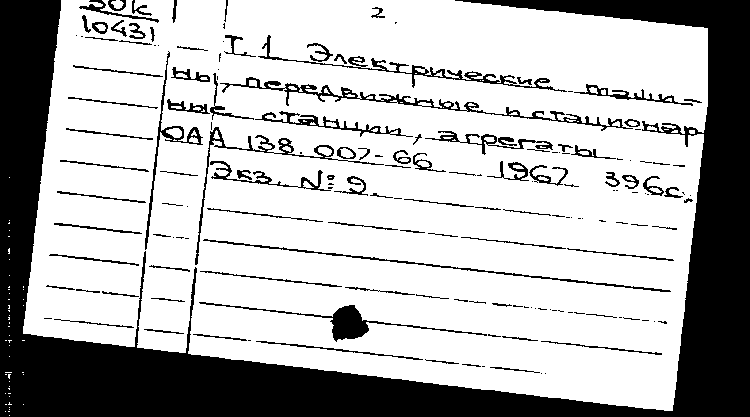 30к
10431
2.
Т. 1 Электрические маши-
ны, передвижные и стационар
ные станции, агрегаты
ОАА 138.007-66 1967 396с.
Экз. №9.